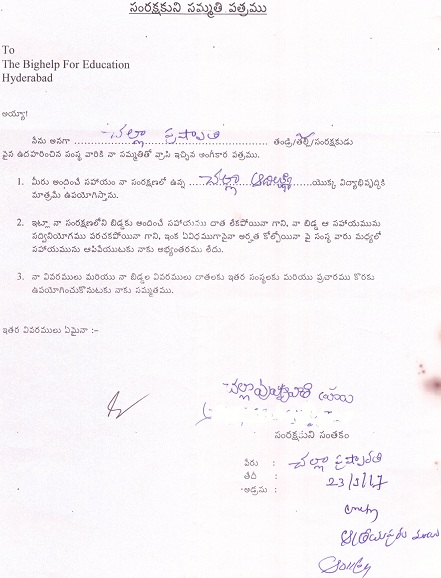 సంరక్షకుని సమ్మతి పత్రము
To
The Bighelp For Education
Hyderabad
అయ్యా!
నేను అనగా ........ చల్లా ........ తండ్రి/తల్లి/సంరక్షకుడు
పైన ఉదహరించిన సంస్థ వారికి నా సమ్మతితో వ్రాసి ఇచ్చిన అంగీకార పత్రము.
1. మీరు అందించే సహాయం నా సంరక్షణలో ఉన్న ........ చల్లా ........ యొక్క విద్యాభివృద్ధికి
మాత్రమే ఉపయోగిస్తాను.
2. ఇట్లా నా సంరక్షణలోని బిడ్డకు అందించే సహాయము దాత లేకపోయినా గాని, నా బిడ్డ ఆ సహాయమును
సద్వినియోగము పరచకపోయినా గాని, ఇంక ఏవిధముగానైనా అర్హత కోల్పోయినా పై సంస్థ వారు మధ్యలో
సహాయమును ఆపివేయుటకు నాకు అభ్యంతరము లేదు.
3. నా వివరములు మరియు నా బిడ్డల వివరములు దాతలకు ఇతర సంస్థలకు మరియు ప్రచారము కొరకు
ఉపయోగించుకొనుటకు నాకు సమ్మతము.
ఇతర వివరములు ఏమైనా :–
చల్లా
సంరక్షకుని సంతకం
పేరు : చల్లా
తేదీ : 23/1/17
అడ్రసు :